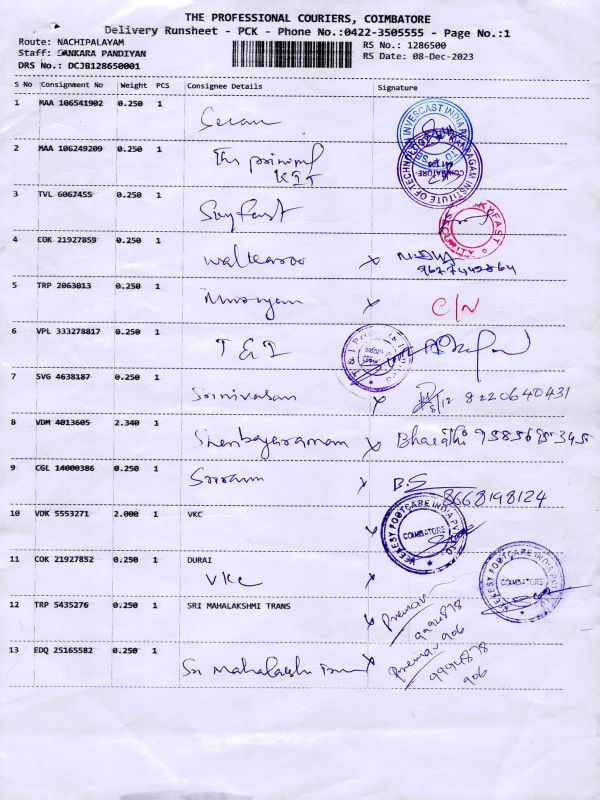 THE PROFESSIONAL COURIERS, COIMBATORE
Delivery Runsheet - PCK - Phone No.:0422-3505555 - Page No.:1
Route: NACHIPALAYAM RS No.: 1286500
Staff: SANKARA PANDIYAN RS Date: 08-Dec-2023
DRS No.: DCJB128650001
S No Consignment No Weight PCS Consignee Details Signature
1 MAA 106541902 0.250 1
2 MAA 106249209 0.250 1 The principal
KIT
3 TVL 6067455 0.250 1 Skyfast
4 COK 21927859 0.250 1 walkaroo x
5 TRP 2063013 0.250 1 x C/N
6 VPL 333278817 0.250 1 T & I
7 SVG 4638187 0.250 1 Srinivasan x 8220640431
8 VDM 4013605 2.340 1 Shenbagaraman x Bharathi
9 CGL 14000386 0.250 1 Sriram x B.S
8668198124
10 VDK 5553271 2.000 1 VKC x
VEEKESY FOOTCARE INDIA PVT LTD
COIMBATORE
11 COK 21927852 0.250 1 DURAI
VKC x
VEEKESY FOOTCARE INDIA
COIMBATORE
12 TRP 5435276 0.250 1 SRI MAHALAKSHMI TRANS x
9994878
906
13 EDQ 25165582 0.250 1 Sri Mahalakshmi Trans x
9994878
906